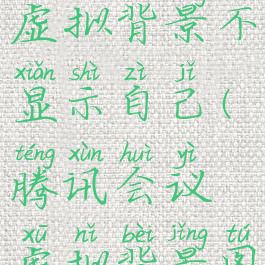 虚拟背景不
xiǎn shì zì jǐ
显示自己(
téng xùn huì yì
腾讯会议
xū nǐ bèi jǐng tú
虚拟背景图